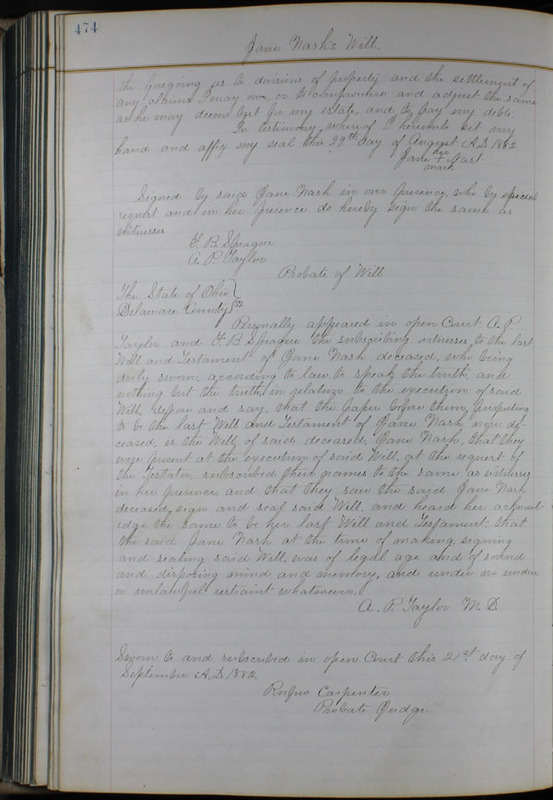 474
Jane Nash's Will.
the foregoing as to divisions of property and the settlement of
any claims I may owe, or to compromise and adjust the same
as he may deem best for my estate, and to pay my debts.
In testimony whereof I hereunto set my
hand and affix my seal this 29th day of August A.D. 1882
her
Jane + Nash
mark
Signed by said Jane Nash in our presence, who by special
request and in her presence do hereby sign the same as
witnesses
F. B. Sprague
A. P. Taylor
Probate of Will
The State of Ohio }
Delaware County } ss
Personally appeared in open Court A. P.
Taylor and F. B. Sprague the subscribing witnesses to the last
Will and Testament of Jane Nash deceased, who being
duly sworn, according to law to speak the truth, and
nothing but the truth, in relation to the execution of said
Will, depose and say, that the paper before them, purporting
to be the last Will and Testament of Jane Nash now de-
ceased, is the Will, of said deceased, Jane Nash, that they
were present at the execution of said Will, at the request of
the Testator subscribed their names to the same as witnesses
in her presence and that they saw the said Jane Nash
deceased, sign and seal said Will, and heard her acknowl-
edge the same to be her last Will and Testament, that
the said Jane Nash at the time of making, signing
and sealing said Will, was of legal age and of sound
and disposing mind and memory, and under no undue
or unlawful restraint whatsoever.
A. P. Taylor M. D.
Sworn to and subscribed in open Court this 21st day of
September A.D. 1882
Rufus Carpenter
Probate Judge